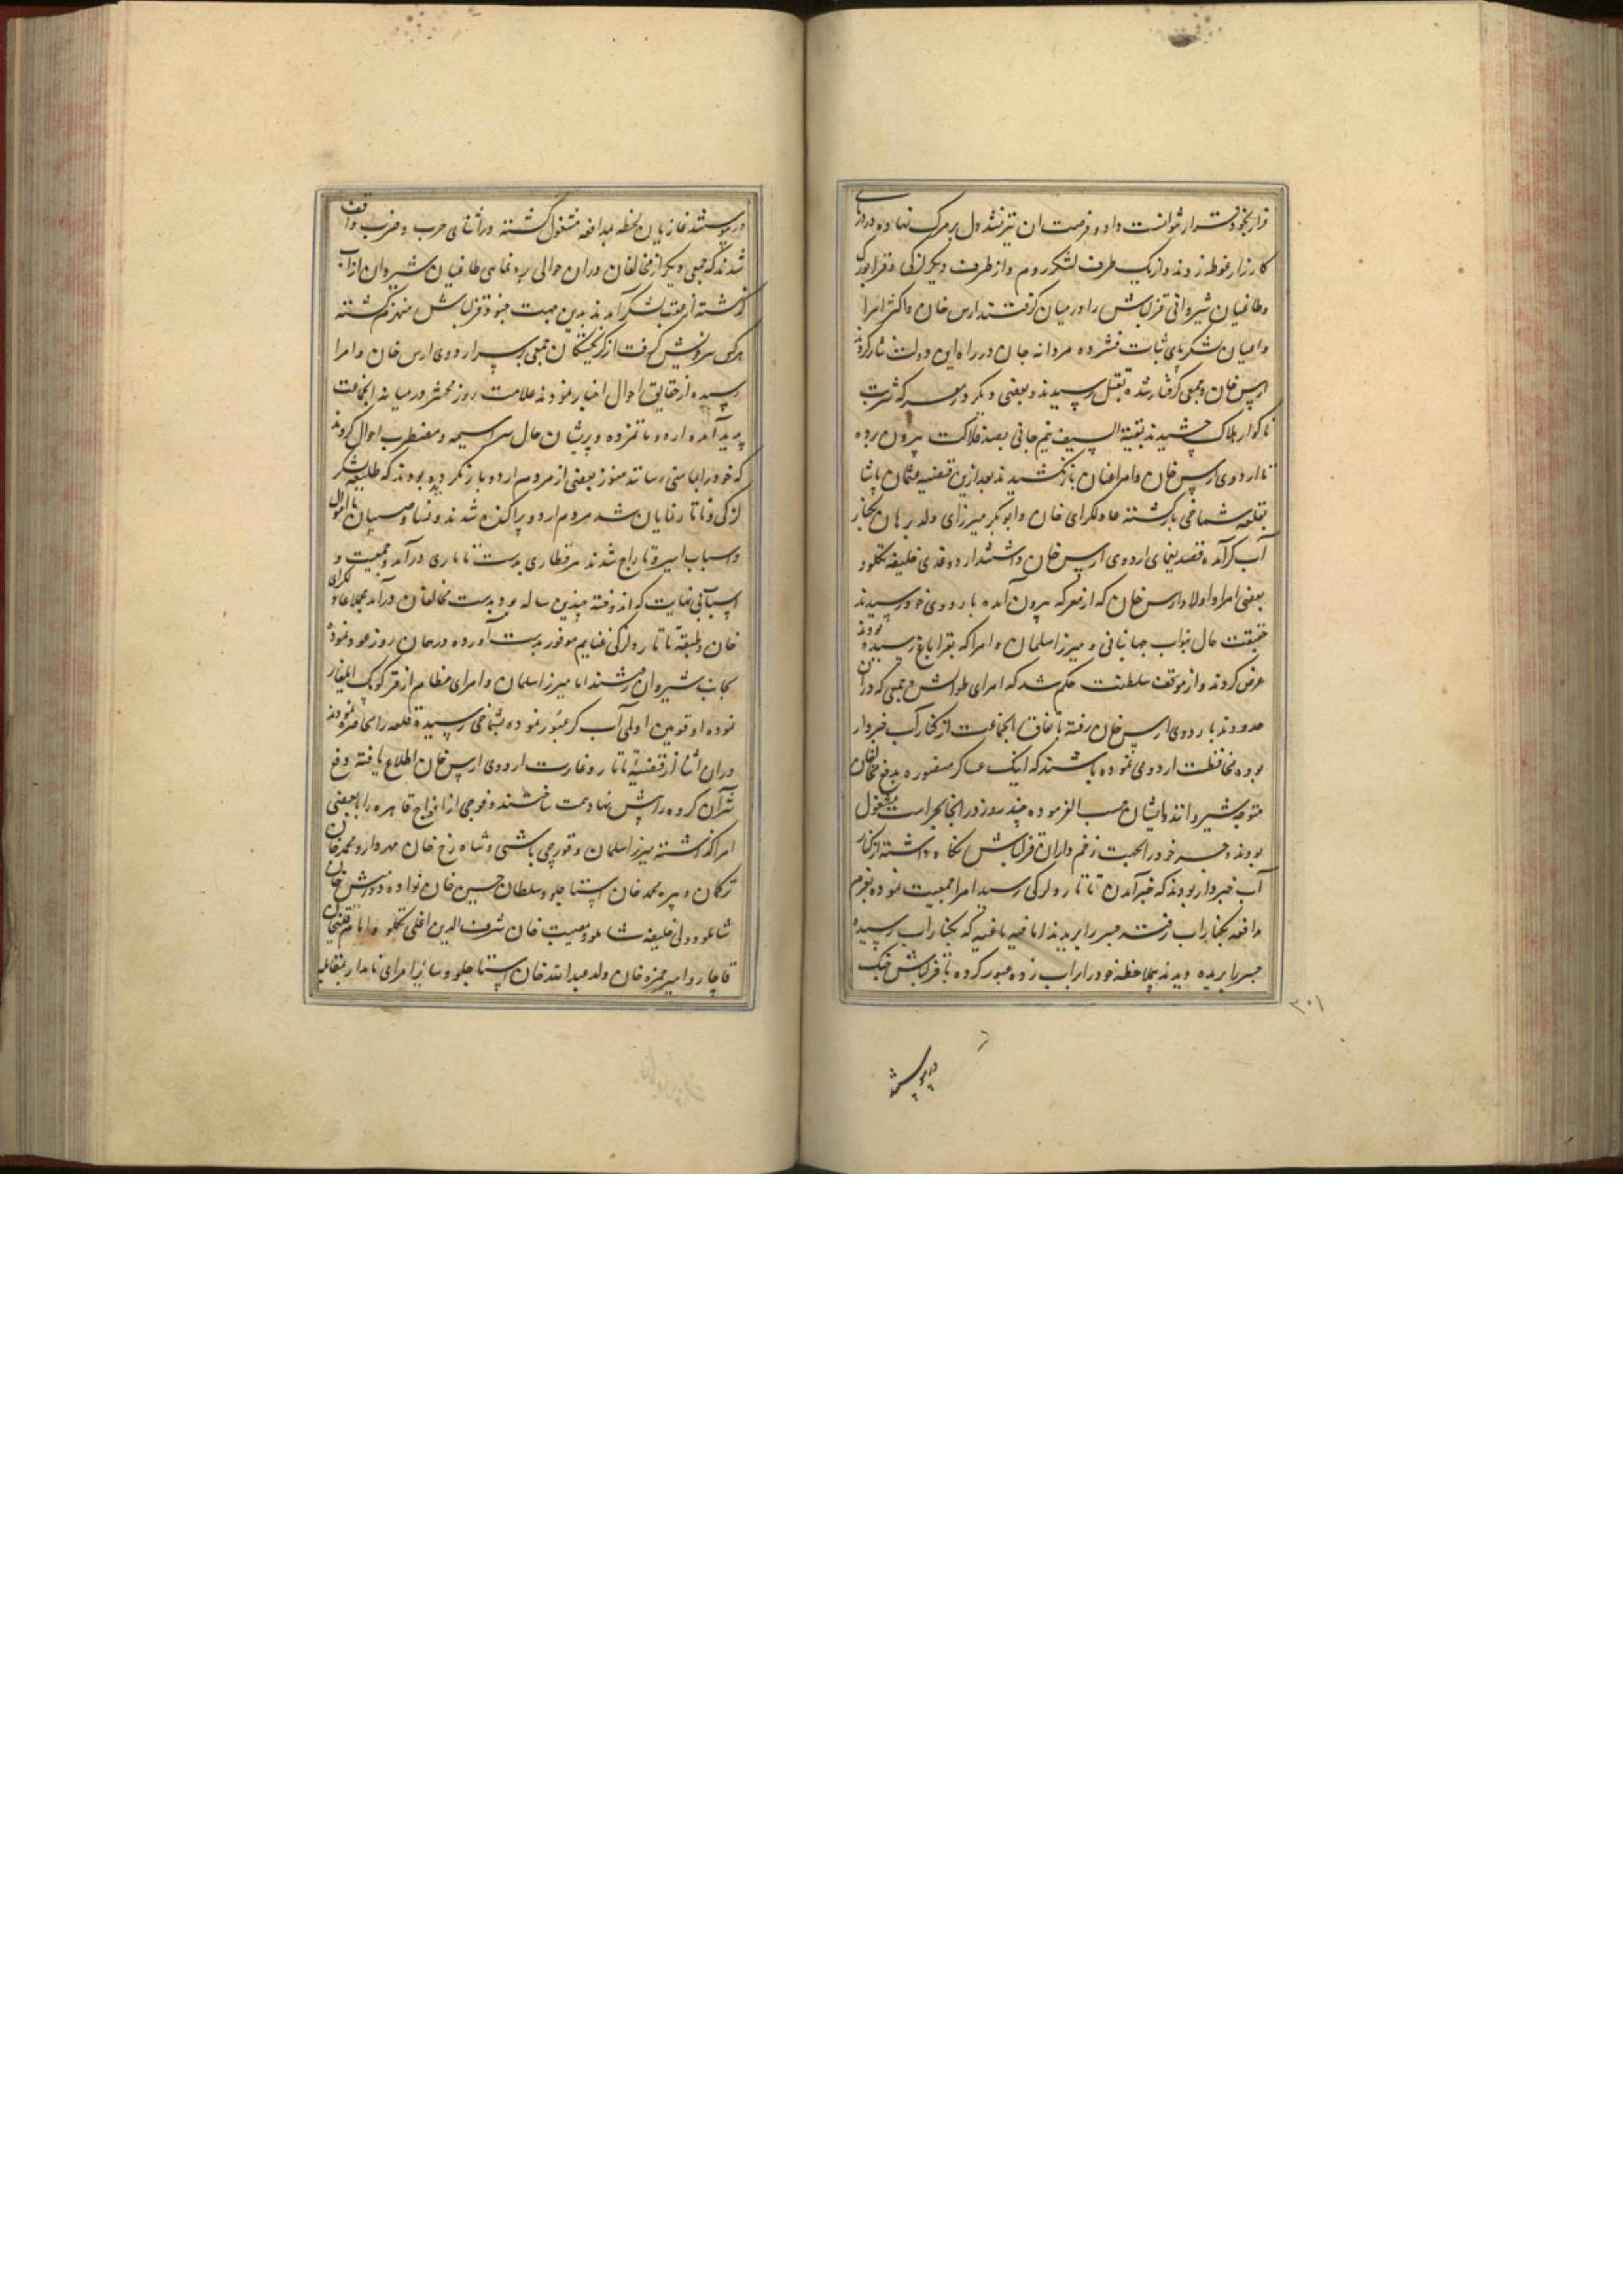 قرار بخود قرار نتوانست داد و فرصت آن نیز نشد دل بر مرگ نهاده در دریای
کارزار غوطه زدند و از یک طرف لشکر روم و از طرف دیگر لزکی و قرابورک
و طاغیان شیروانی قزلباش را در میان گرفتند ارس خان و اکثر امرا
و اعیان لشکر پای ثبات فشرده مردانه جان در راه این دولت نثار کردند
ارس خان و جمعی گرفتار شده بقتل رسیدند و بعضی دیگر در معرکه شربت
ناگوار هلاک چشیدند بقیة السیف نیم جانی بصد فلاکت بیرون برده
تا اردوی ارس خان و امرا عنان باز نکشیدند بعد از این قضیه عثمان پاشا
بقلعه شماخی بازگشته عادلکرای خان و ابوبکر میرزای ولد برهان بکنار
آب کر آمده قصد یغمای اردوی ارس خان داشتند اردوغدی خلیفه تکلو و
بعضی امرا و اولاد ارس خان که از معرکه بیرون آمده باردوی خود رسیدند
حقیقت حال بنواب جهانبانی و میرزا سلمان و امرا که بقراباغ رسیده بودند
عرض کردند و از موقف سلطنت حکم شد که امرای طوالش و جمعی که در آن
حدودند باردوی ارس خان رفته باتفاق آنجماعت از کنار آب خبردار
بوده محافظت اردو می نموده باشند که اینک عساکر منصوره بدفع مخالفان
متوجه شیروانند و ایشان حسب الفرموده چند روز در آنجا بحراست مشغول
بودند و جسر خود را بجهت زخم داران قزلباش نگاه داشته از کنار
آب خبردار بودند که خبر آمدن تاتار و لزکی رسید امرا جمعیت نموده بعزم
مدافعه بکنار آب رفته جسر را بریدند اما فیه باغیه که بکنار آب رسیده
جسر را بریده دیدند بیملاحظه خود را بر آب زده عبور کرده با قزلباش جنگ
۳۰۱
در پیوستند
در پیوستند غازیان لحظه بمدافعه مشغول گشته در اثنای حرب و ضرب واقف
شدند که جمعی دیگر از مخالفان در آن حوالی برهنمایی طاغیان شیروان از آب
گذشته از عقب لشکر آمدند بدین جهت جنود قزلباش منهزم گشته
هر کس سر خویش گرفت از گریختگان جمعی بر سر اردوی ارس خان و امرا
رسیده از حقایق احوال اخبار نمودند علامت روز محشر در میانه آنجماعت
پدید آمده اردو ماتمزده و پریشان حال سراسیمه و مضطرب احوال کردند
که خود را بمامنی رسانند هنوز بعضی از مردم اردو بار نکرده بودند که طلیعه لشکر
لزکی و تاتار نمایان شد مردم اردو پراکنده شدند و نسا و صبیان با اموال
و اسباب اسیر و تاراج شدند هر قطاری بدست تاتاری درآمد و جمعیت و
اسباب بی نهایت که اندوخته چندین ساله بود بدست مخالفان درآمد مجملا عادلکرای
خان و طبقه تاتار و لزکی غنایم موفور بدست آورده در همان روز عود نموده
بجانب شیروان رفتند اما میرزا سلمان و امرای عظام از قرکوبک ایلغار
نموده از قوین اولمی آب کر عبور نموده بشماخی رسیده قلعه را محاصره نمودند
در آن اثنا از قضیه تاتار و غارت اردوی ارس خان اطلاع یافته دفع
شر آن گروه را پیش نهاد همت ساختند و فوجی از افواج قاهره را با بعضی
امرا گذاشته میرزا سلمان و قورچی باشی و شاه رخ خان مهردار و محمد خان
ترکمان و پیره محمد خان استاجلو و سلطان حسین خان نواده دورمش خان
شاملو و ولی خلیفه شاملو و مسیب خان شرف الدین اغلی تکلو و امام قلیخان
قاجار و امیر حمزه خان ولد عبدالله خان استاجلو و سائر امرای نامدار بمقابله